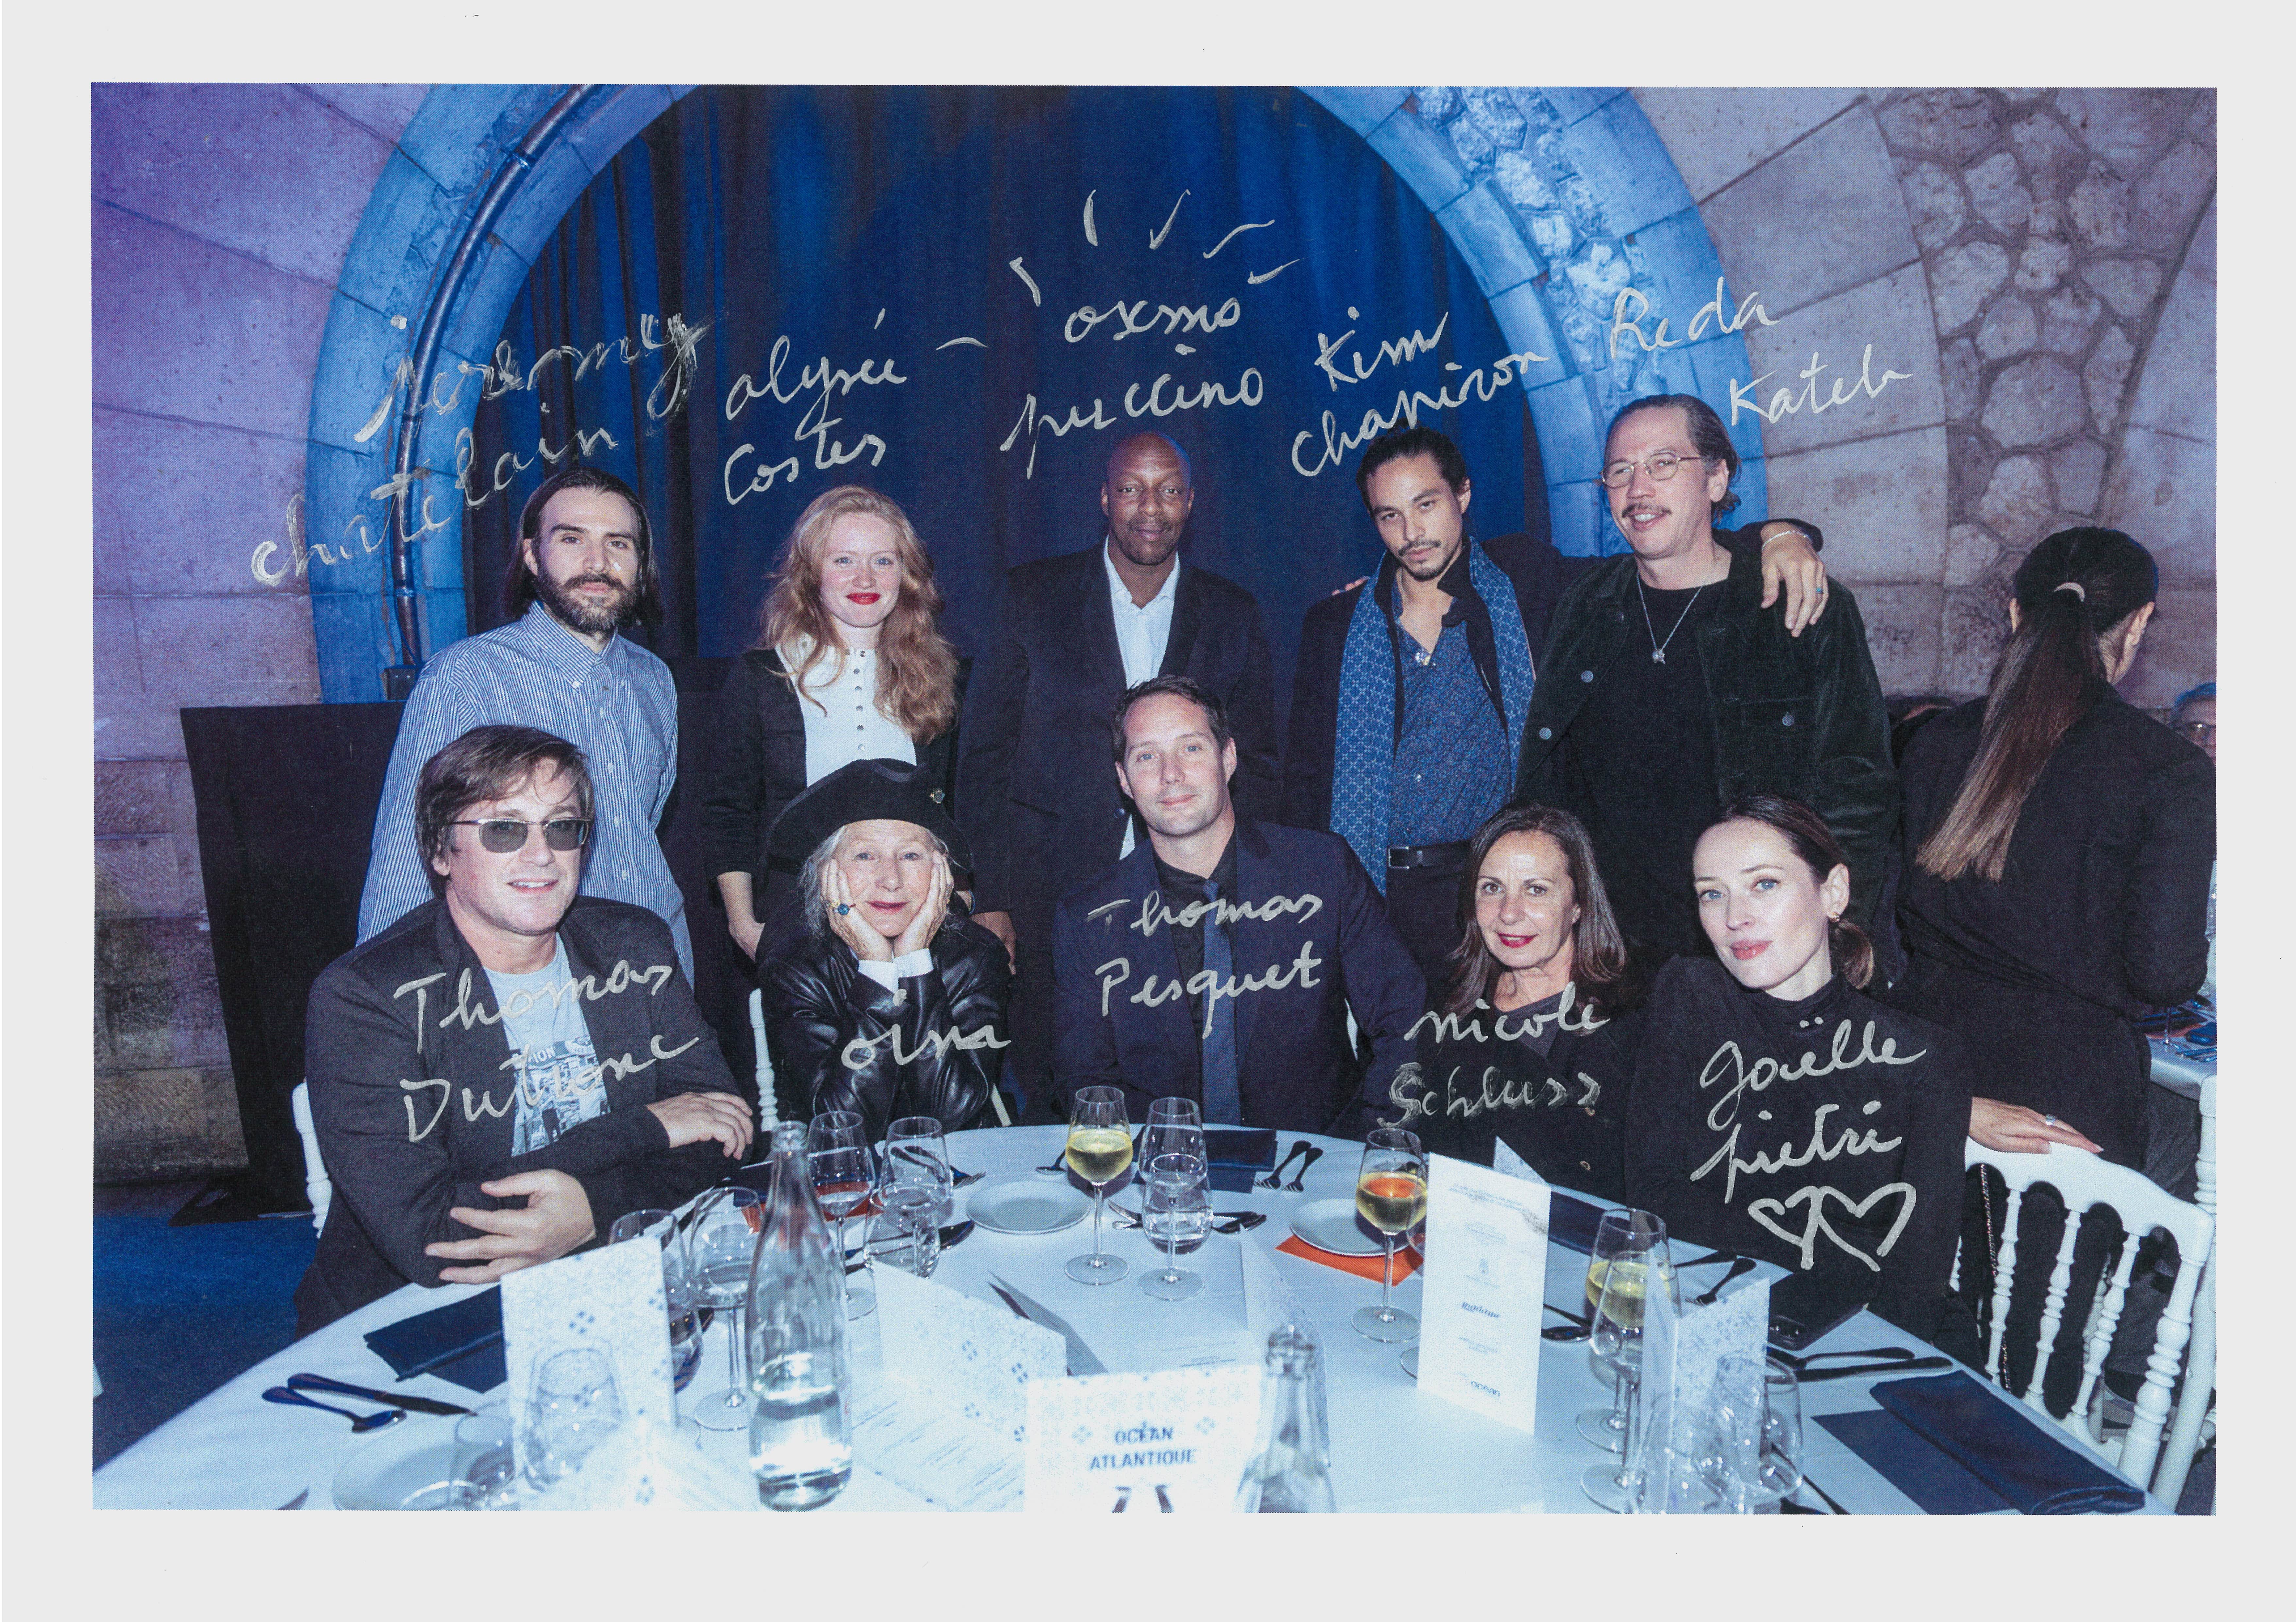 jeremy
chatelain
alysée
Costes
oxmo
puccino
Kim
chapiron
Reda
Kateb
Thomas
Dutronc
Thomas
Pesquet
nicole
Schluss
gaëlle
pietri
OCÉAN
ATLANTIQUE